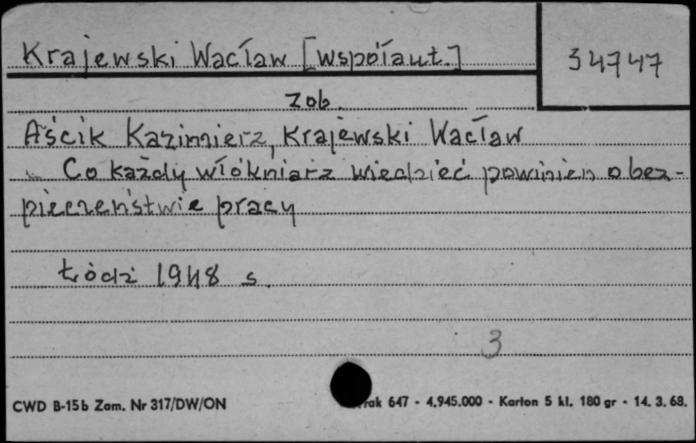 Krajewski Wacław [współaut.]
34747
zob.
Aścik Kazimierz, Krajewski Wacław
Co każdy włókniarz wiedzieć powinien o bez-
pieczeństwie pracy
Łódź 1948 s.
3
CWD B-15b Zam. Nr 317/DW/ON
647 - 4.945.000 - Karton 5 kl. 180 gr - 14. 3. 68.